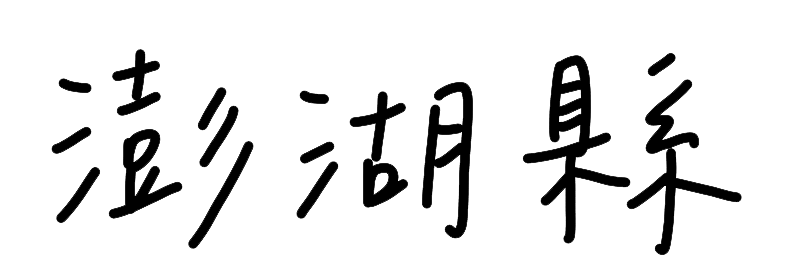 澎湖縣